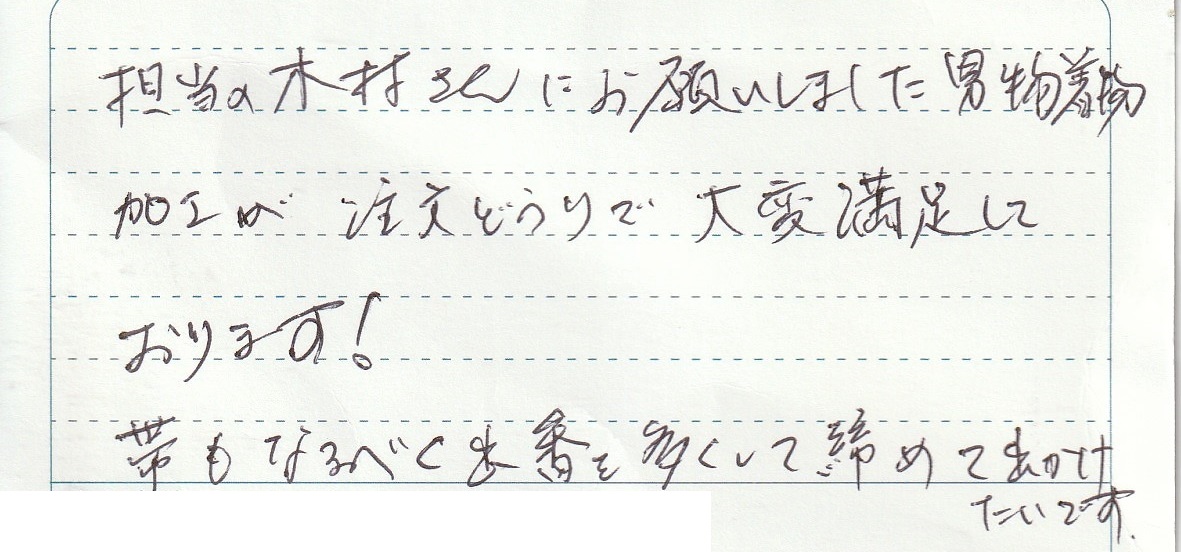 担当の木村さんにお願いしました男物着物
加工が注文どうりで大変満足して
おります!
帯もなるべく出番を多くして締めて出かけ
たいです.